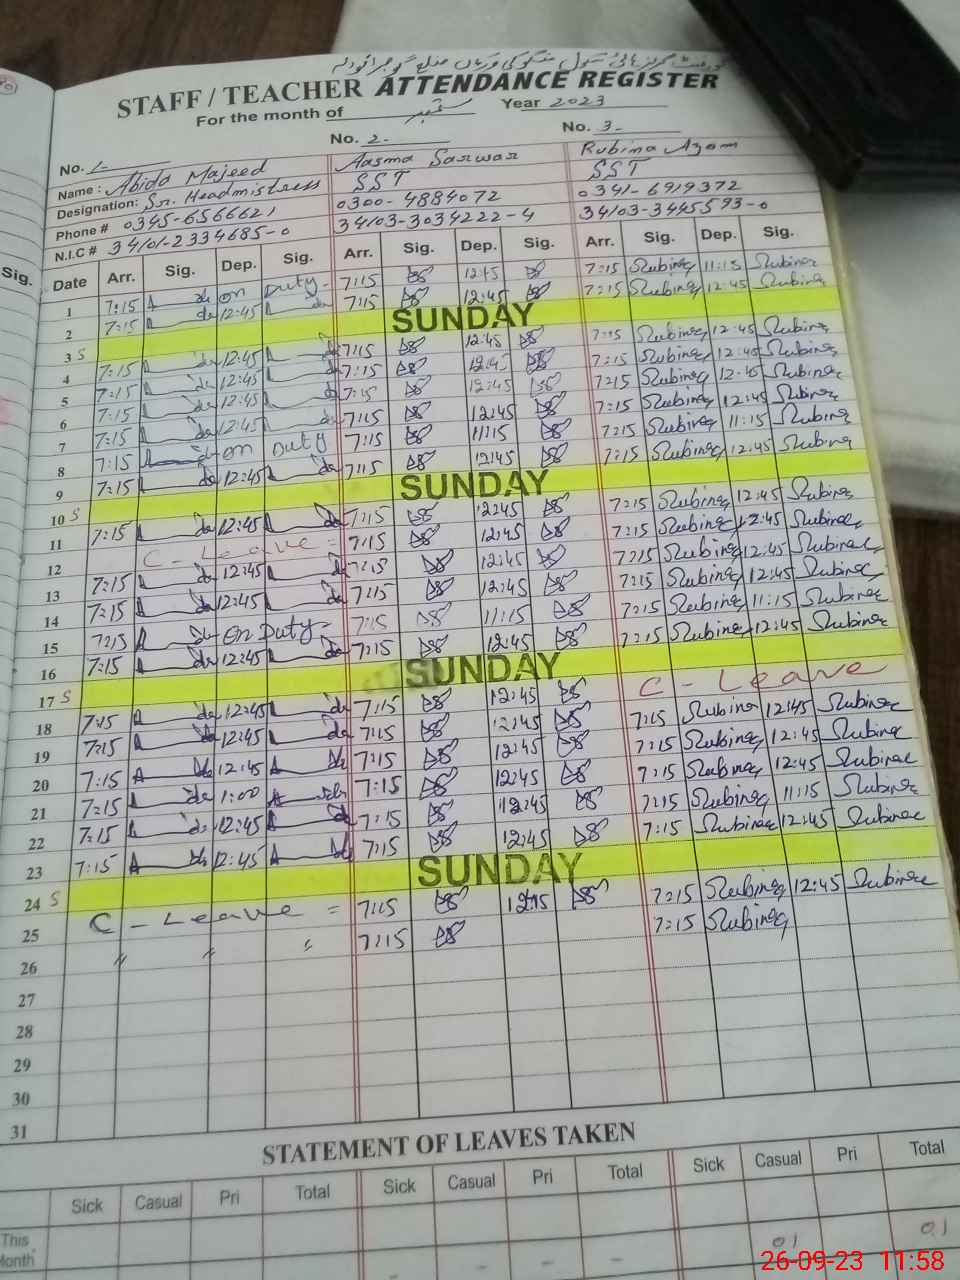 گورنمنٹ گرلز ہائی سکول منگوکی ورکاں ضلع گوجرانوالہ
STAFF / TEACHER ATTENDANCE REGISTER
For the month of ستمبر Year 2023
No. 1- No. 2- No. 3-
Name: Abida Majeed Aasma Sarwar Rubina Azam
Designation: Sr. Headmistress SST SST
Phone # 0345-6566621 0300-4884072 0341-6919372
N.I.C # 34101-2334685-0 34103-3034222-4 34103-3445593-0
Date Arr. Sig. Dep. Sig. Arr. Sig. Dep. Sig. Arr. Sig. Dep. Sig.
1 7:15 on Duty 7:15 12:45 7:15 Rubina 11:15 Rubina
2 7:15 12:45 7:15 12:45 7:15 Rubina 12:45 Rubina
3 S SUNDAY
4 7:15 12:45 7:15 12:45 7:15 Rubina 12:45 Rubina
5 7:15 12:45 7:15 12:45 7:15 Rubina 12:45 Rubina
6 7:15 12:45 7:15 12:45 7:15 Rubina 12:45 Rubina
7 7:15 12:45 7:15 12:45 7:15 Rubina 12:45 Rubina
8 7:15 on Duty 7:15 11:15 7:15 Rubina 11:15 Rubina
9 7:15 12:45 7:15 12:45 7:15 Rubina 12:45 Rubina
10 S SUNDAY
11 7:15 12:45 7:15 12:45 7:15 Rubina 12:45 Rubina
12 C - Leave = 7:15 12:45 7:15 Rubina 12:45 Rubina
13 7:15 12:45 7:15 12:45 7:15 Rubina 12:45 Rubina
14 7:15 12:45 7:15 12:45 7:15 Rubina 12:45 Rubina
15 7:15 on Duty 7:15 11:15 7:15 Rubina 11:15 Rubina
16 7:15 12:45 7:15 12:45 7:15 Rubina 12:45 Rubina
17 S SUNDAY
18 7:15 12:45 7:15 12:45 C - Leave
19 7:15 12:45 7:15 12:45 7:15 Rubina 12:45 Rubina
20 7:15 12:45 7:15 12:45 7:15 Rubina 12:45 Rubina
21 7:15 1:00 7:15 12:45 7:15 Rubina 12:45 Rubina
22 7:15 12:45 7:15 12:45 7:15 Rubina 11:15 Rubina
23 7:15 12:45 7:15 12:45 7:15 Rubina 12:45 Rubina
24 S SUNDAY
25 C - Leave = 7:15 12:45 7:15 Rubina 12:45 Rubina
26 〃 〃 〃 7:15 7:15 Rubina
27
28
29
30
31
STATEMENT OF LEAVES TAKEN
Sick Casual Pri Total Sick Casual Pri Total Sick Casual Pri Total
This Month - - - 01 01
Sig.
26-09-23 11:58